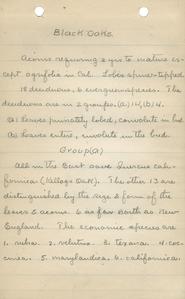 Black Oaks.
Acorns requiring 2 yrs to mature ex-
cept agrifolia in Cal. Lobes spine-tipped
18 deciduous, 6 evergreen species. The
deciduous are in 2 groups. (a) 14, (b) 4.
(a) Leaves pinnately lobed, convolute in bud
(b) Leaves entire, involute in the bud.
Group (a)
All in the East save Quercus cal-
ifornica (Kellogg Oak). The other 13 are
distinguished by the size & form of the
leaves & acorns. 6 as far North as New
England. The economic species are
1. rubra. 2. velutina. 3. texana. 4. coc-
cinea. 5. marylandica. 6. californica.